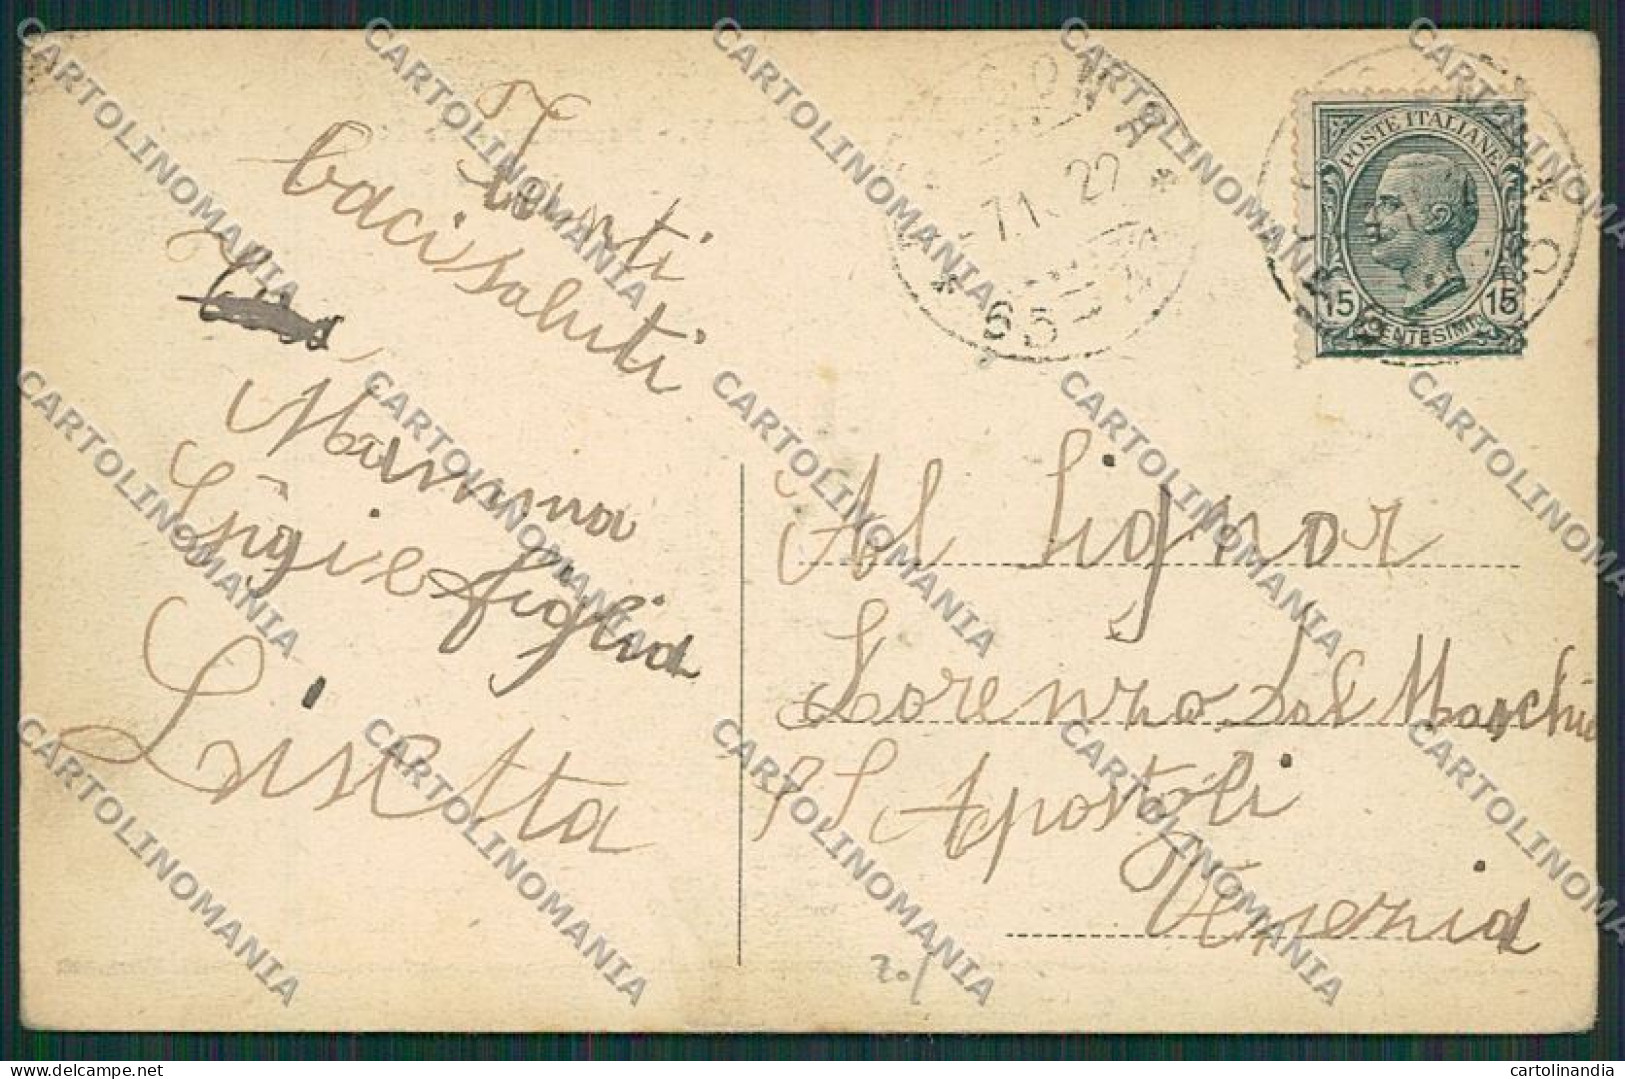 Tanti
baci saluti
Mamma
Luigi e figlia
Lisetta
7.1 22
65
POSTE ITALIANE
15 CENTESIMI 15
Al Signor
Lorenzo Dal Maschio
SS Apostoli
Venezia
20/
CARTOLINOMANIA
cartolinandia